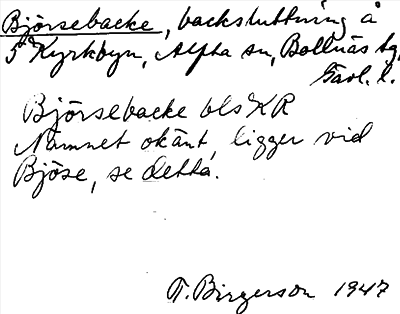 Björsebacke, backsluttning å
5 Kyrkbyn, Alfta sn, Bollnäs tg,
Gävl. l.
Björsebacke bls KR
Namnet okänt, ligger vid
Bjöse, se detta.
T. Birgerson 1947